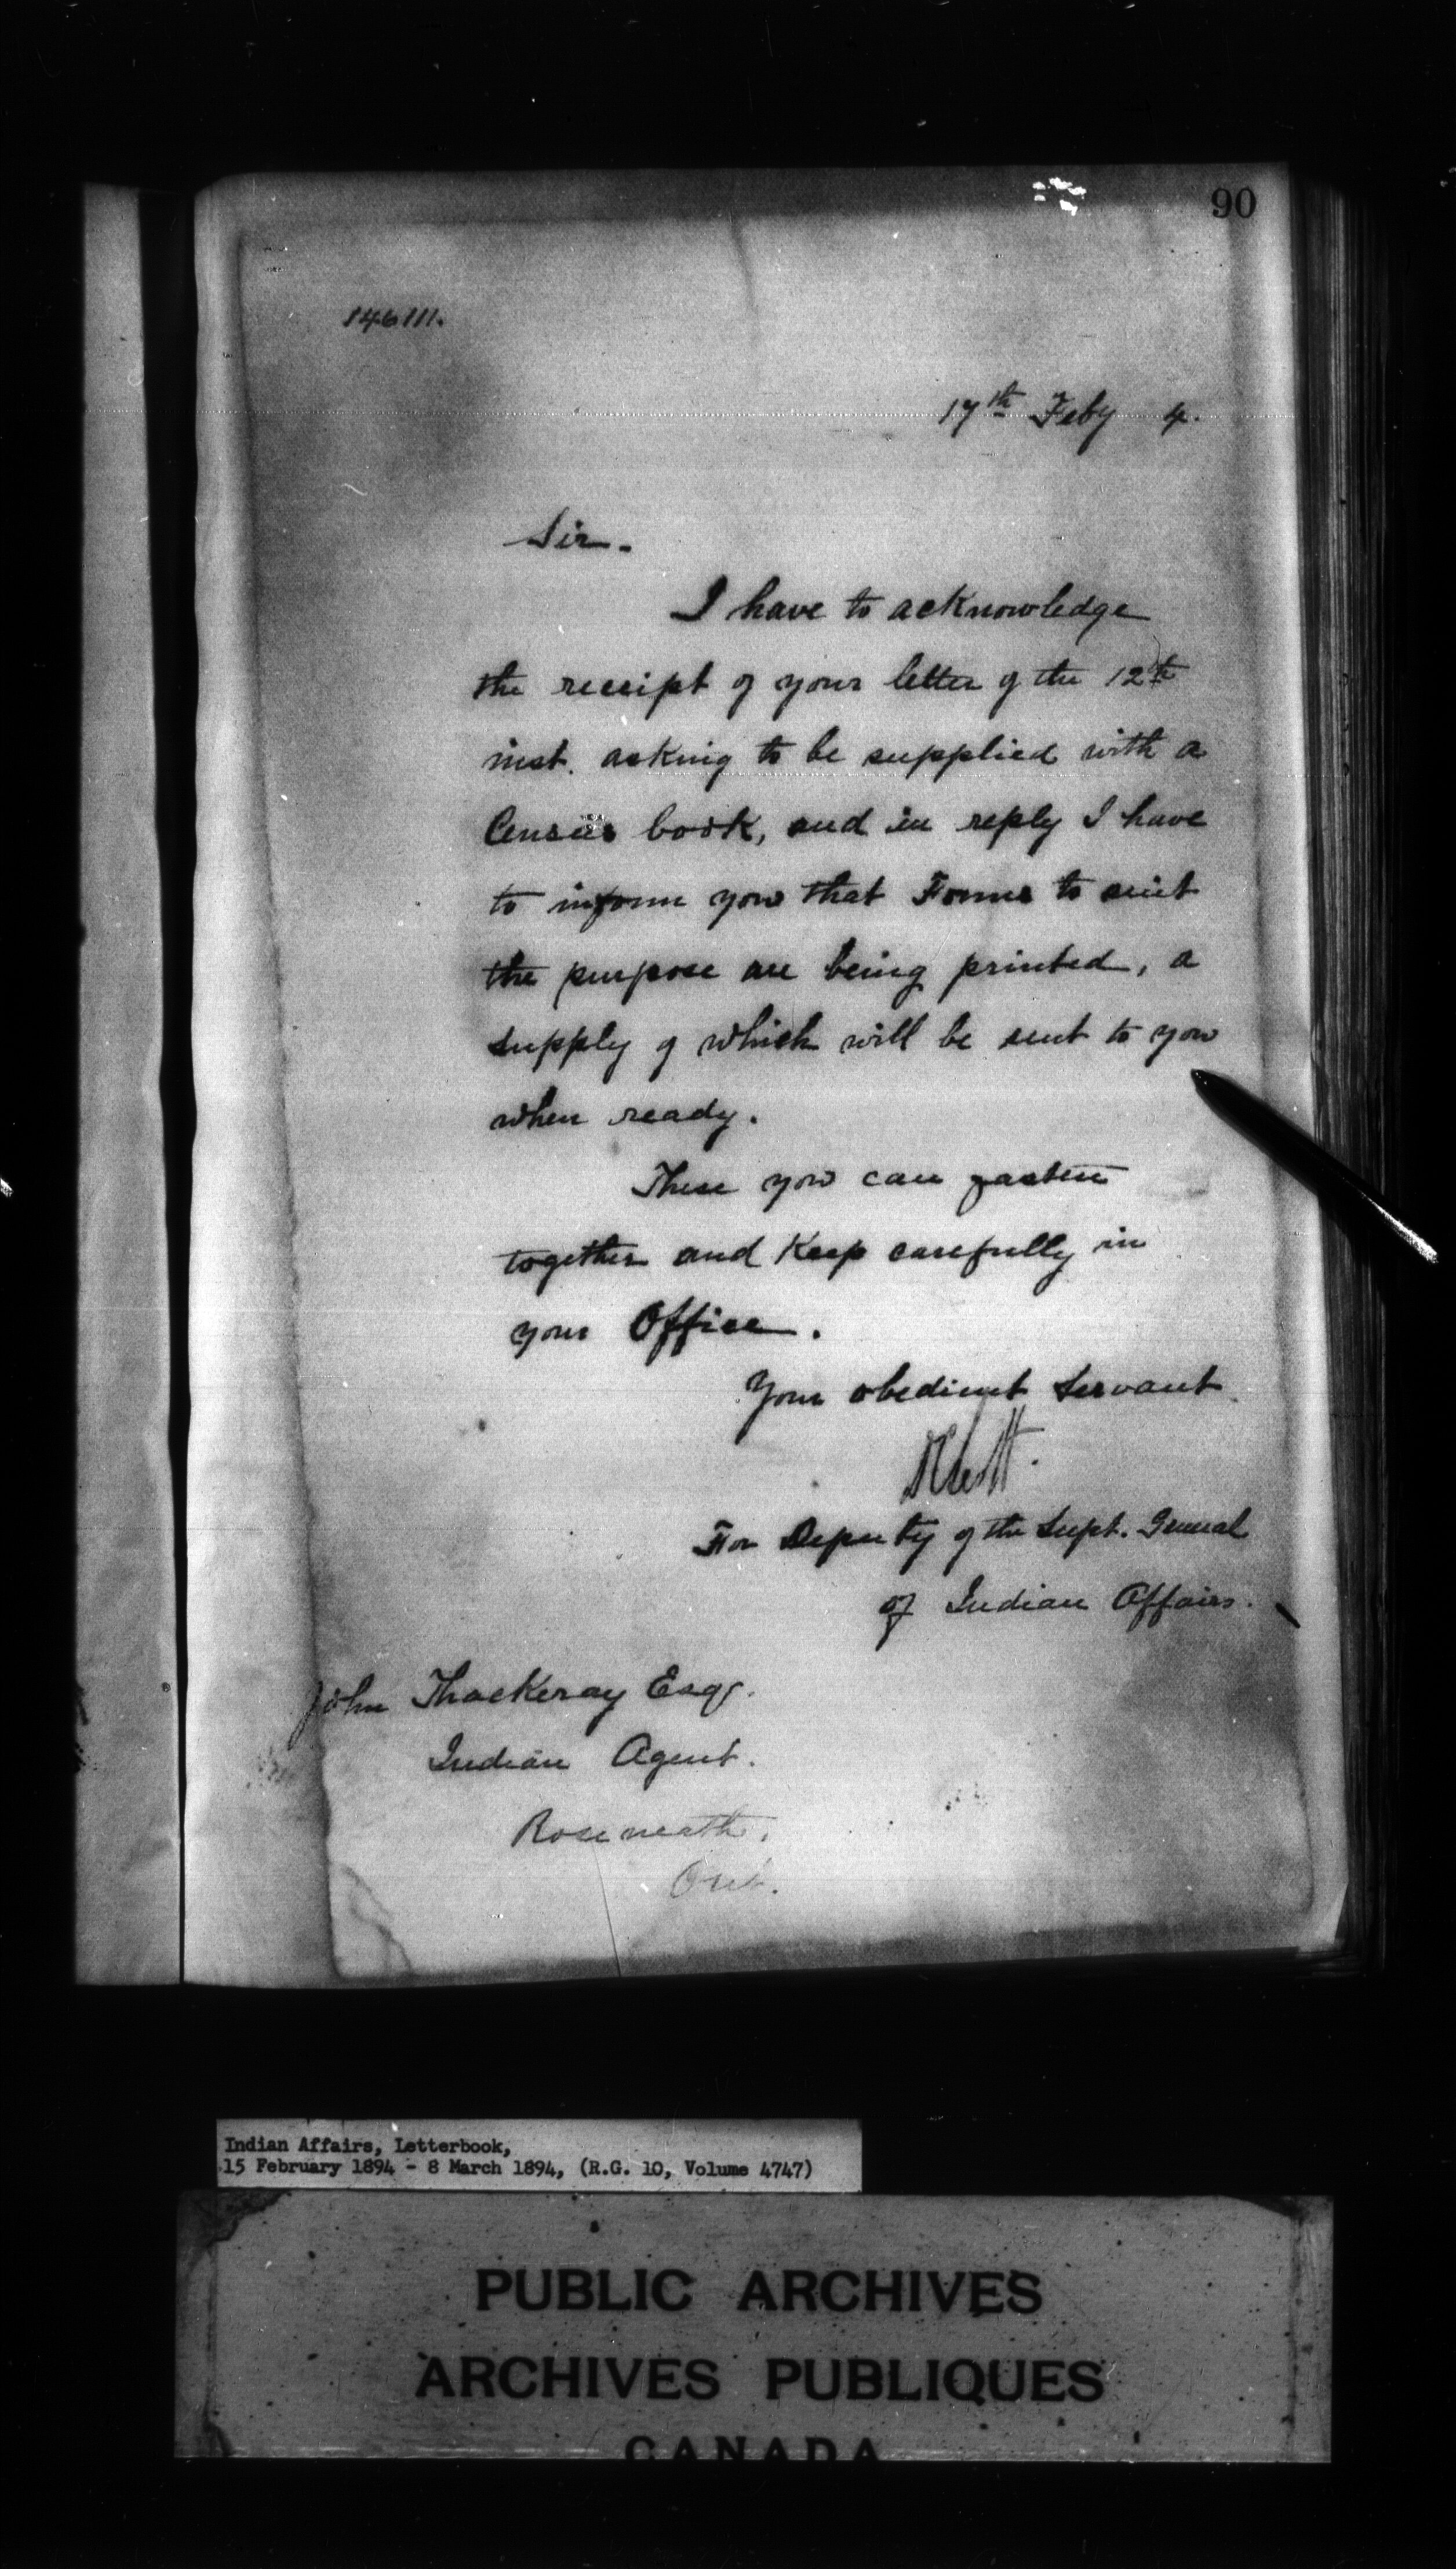 90
146111.
17th Feby 4.
Sir.
I have to acknowledge
the receipt of your letter of the 12th
inst. asking to be supplied with a
Census book, and in reply I have
to inform you that Forms to suit
the purpose are being printed, a
supply of which will be sent to you
when ready.
These you can fasten
together and Keep carefully in
your Office.
Your obedient Servant
For Deputy of the Supt. General
of Indian Affairs.
John Thackeray Esqr.
Indian Agent.
Roseneath.
Ont.
Indian Affairs, Letterbook,
15 February 1894 - 8 March 1894, (R.G. 10, Volume 4747)
PUBLIC ARCHIVES
ARCHIVES PUBLIQUES
CANADA